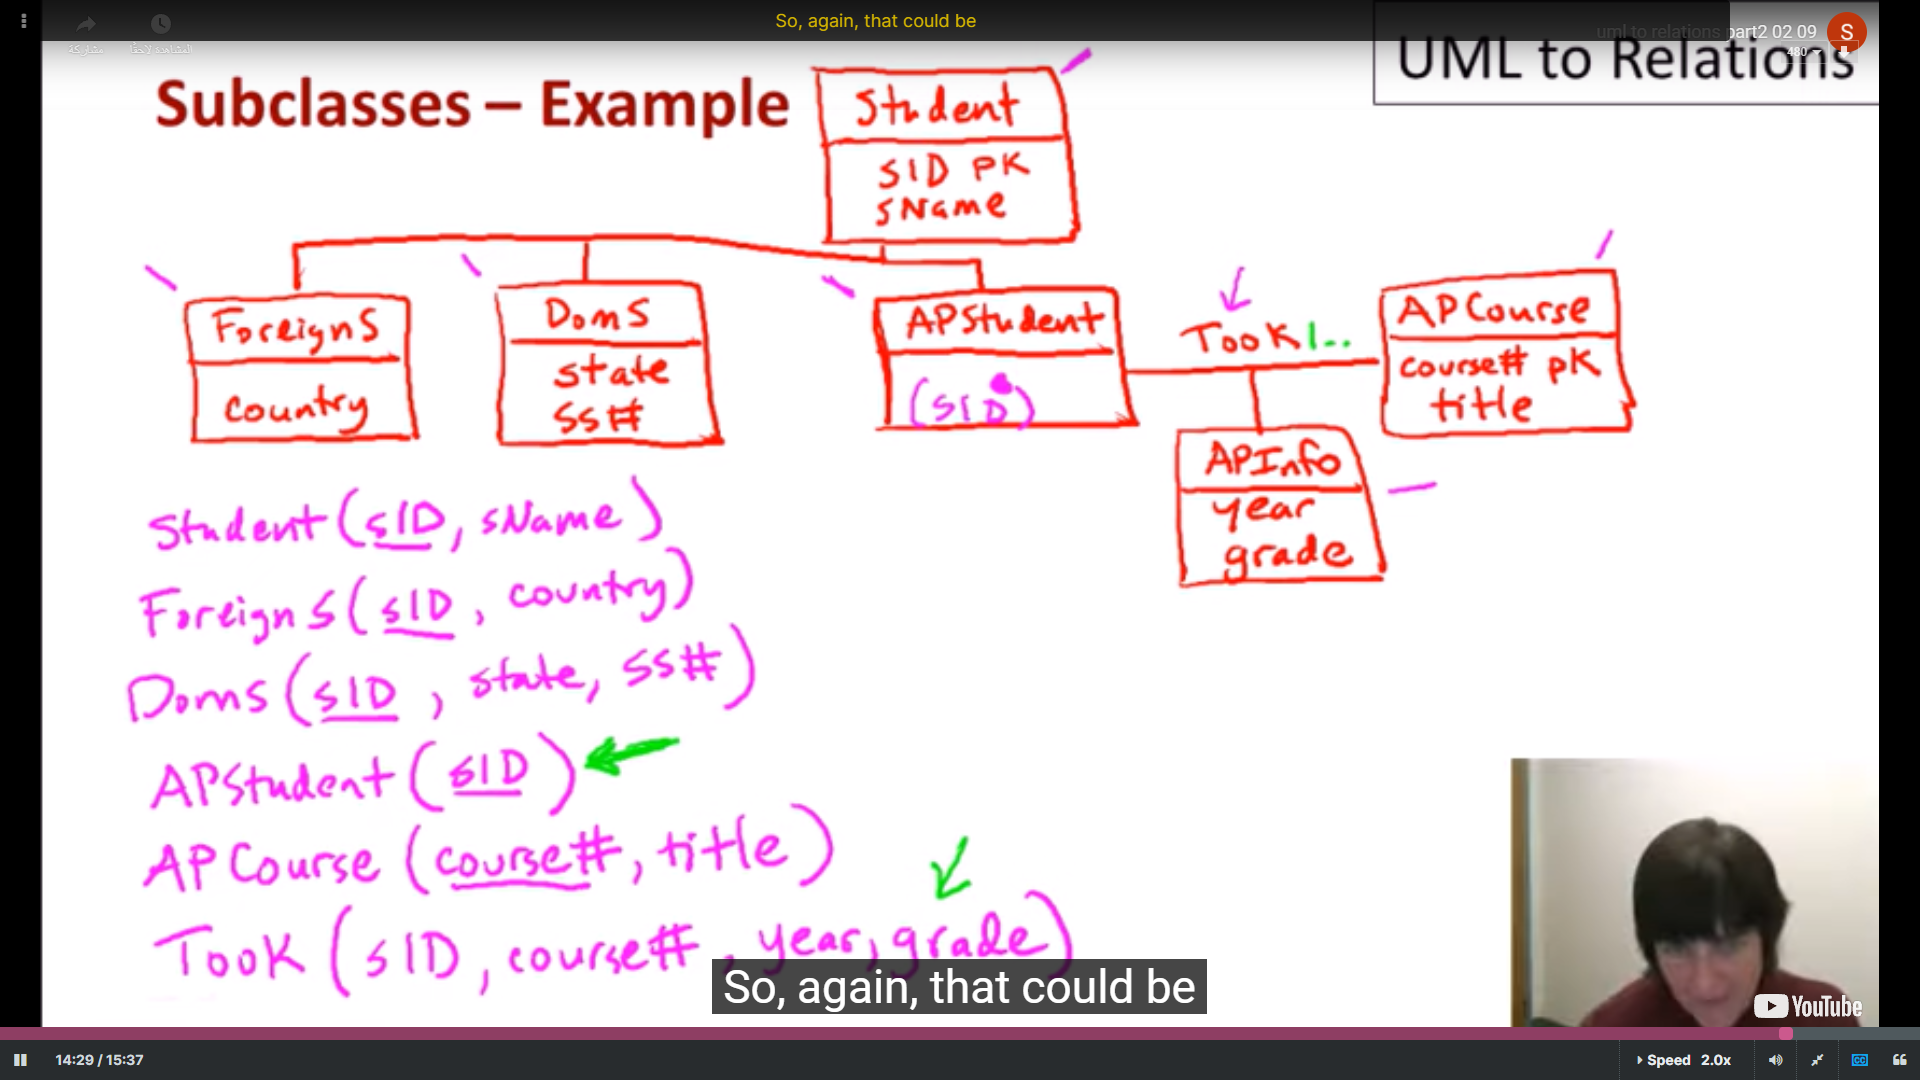 So, again, that could be
uml to relations part2 02 09
S
مشاركة
المشاهدة لاحقًا
480
UML to Relations
Subclasses – Example
Student
SID PK
sName
ForeignS
country
DomS
state
SS#
APStudent
(SID)
Took 1..
APCourse
course# pK
title
APInfo
year
grade
Student (sID, sName)
ForeignS (sID, country)
DomS (sID, state, SS#)
APStudent (sID)
APCourse (course#, title)
Took (sID, course#, year, grade)
So, again, that could be
YouTube
14:29 / 15:37
Speed 2.0x
CC